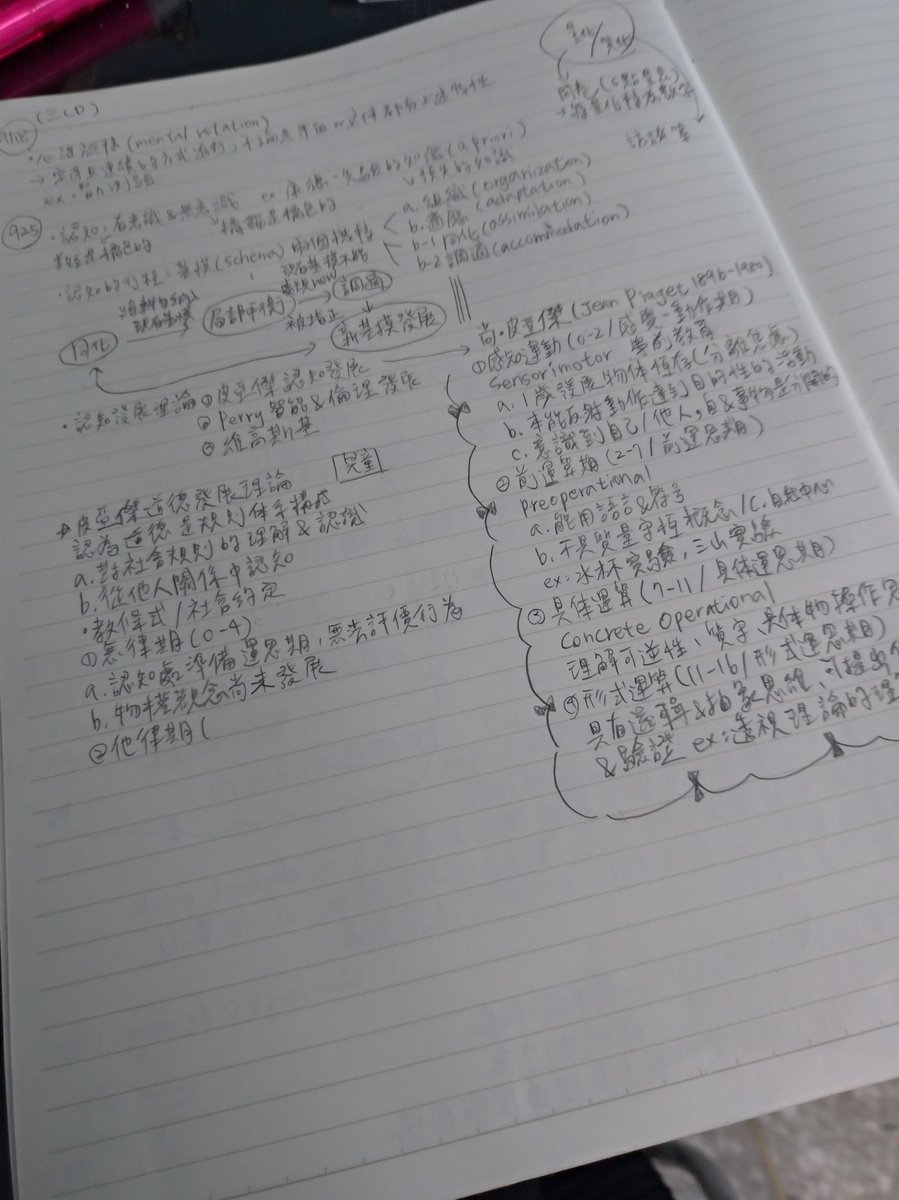 (三CD)
9/18
・心理旋轉 (mental rotation)
ex: 智力測驗
925
・認知: 有意識&無意識 ex 康德-先驗的知識 (a priori)
橘貓是橘色的
・認知的行程: 基模 (schema) 兩個機轉
a. 組織 (organization)
b. 適應 (adaptation)
b-1 同化 (assimilation)
b-2 調適 (accommodation)
同化
將新物納入
現有基模
局部平衡
現有基模不能
new
被指正
調適
新基模發展
・認知發展理論 ① 皮亞傑 認知發展
② Perry 智能&倫理發展
③ 維高斯基
兒童
皮亞傑道德發展理論
認為道德是規則体系構成
a. 對社會規則的理解&認識
b. 從他人關係中認知
・教條式/社會約定
① 無律期 (0-4)
a. 認知處準備運思期,無法評價行為
b. 物權觀念尚未發展
② 他律期 (
量化/質化
問卷 (5點量表)
訪談等
尚・皮亞傑 (Jean Piaget 1896-1980)
① 感知運動 (0-2/感覺-動作期)
Sensorimotor 學前教育
a. 1歲發展物体恆存 (分離焦慮)
b. 本能反射動作達到目的性的活動
c. 意識到自己/他人,自&事物是分開的
② 前運算期 (2-7/前運思期)
preoperational
a. 能用語言&符号
b. 不具質量守恆概念/c. 自我中心
ex: 水杯實驗, 三山實驗
③ 具体運算 (7-11/具体運思期)
Concrete Operational
理解可逆性、質守、具体物操作
④ 形式運算 (11-16/形式運思期)
具有邏輯&抽象思維、可提出
&驗證 ex: 透視理論的理